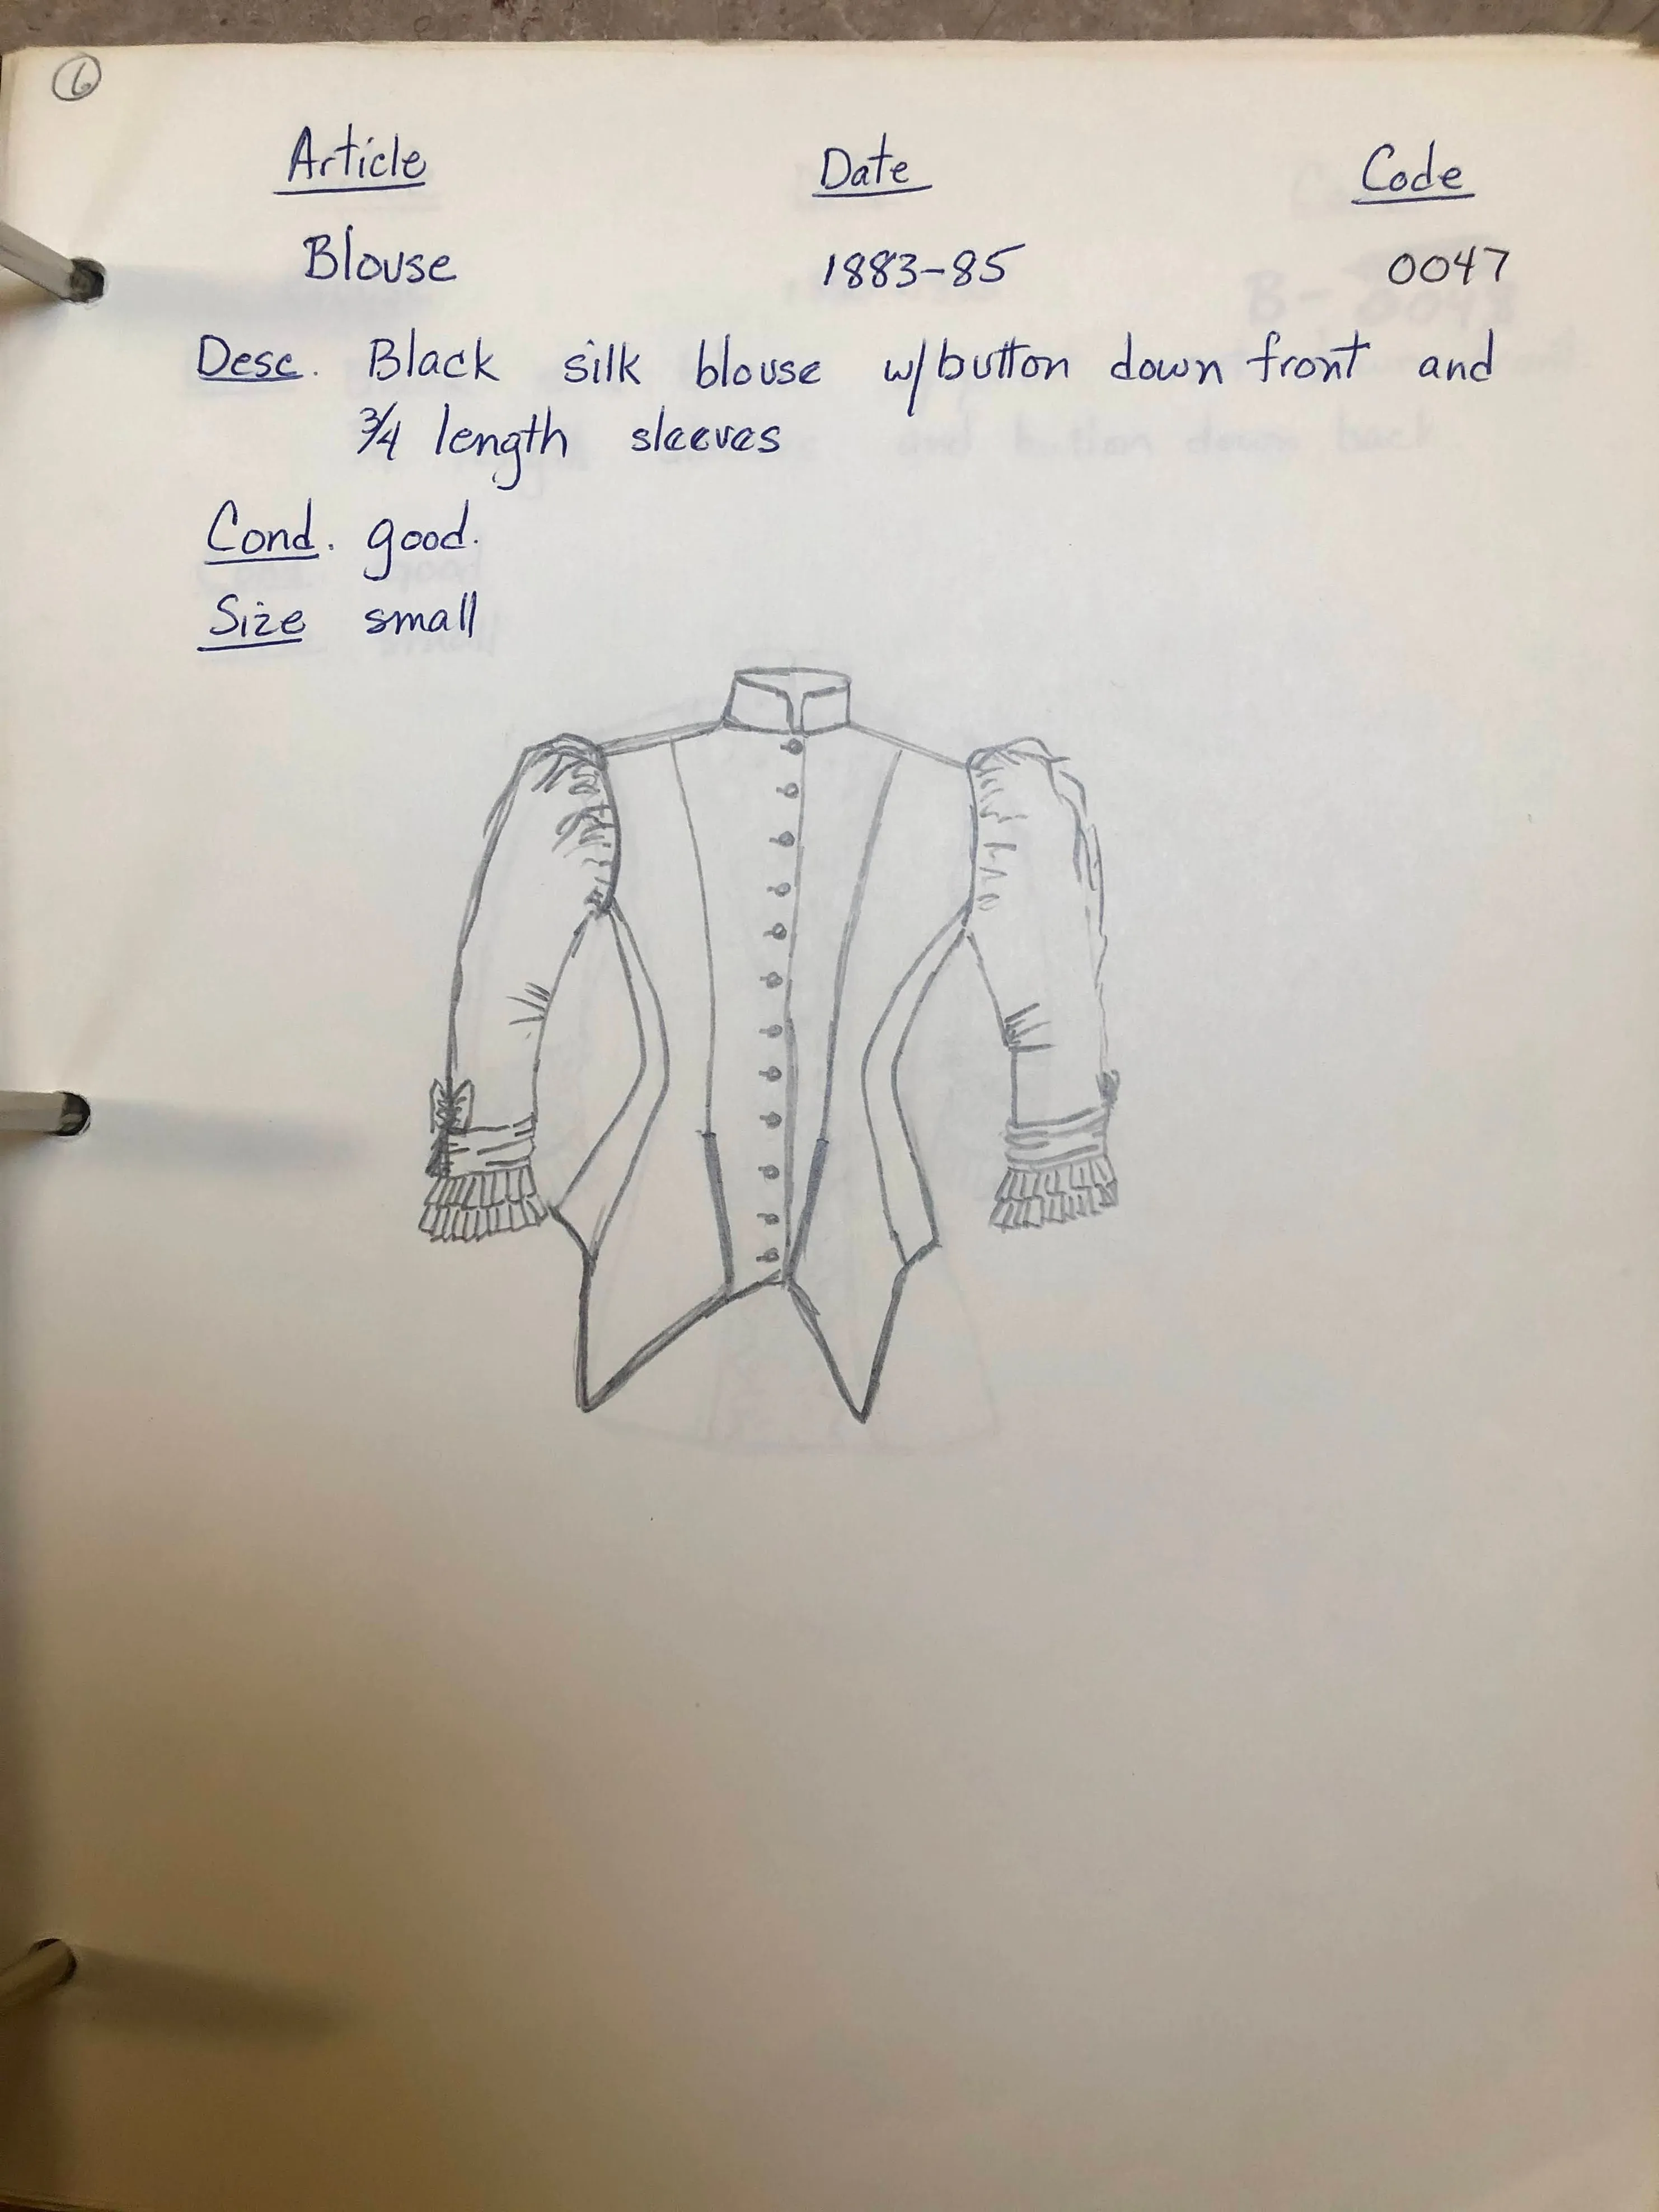 6
Article Date Code
Blouse 1883-85 0047
Desc. Black silk blouse w/button down front and
3/4 length sleeves
Cond. good.
Size small
B-0048
and button down back